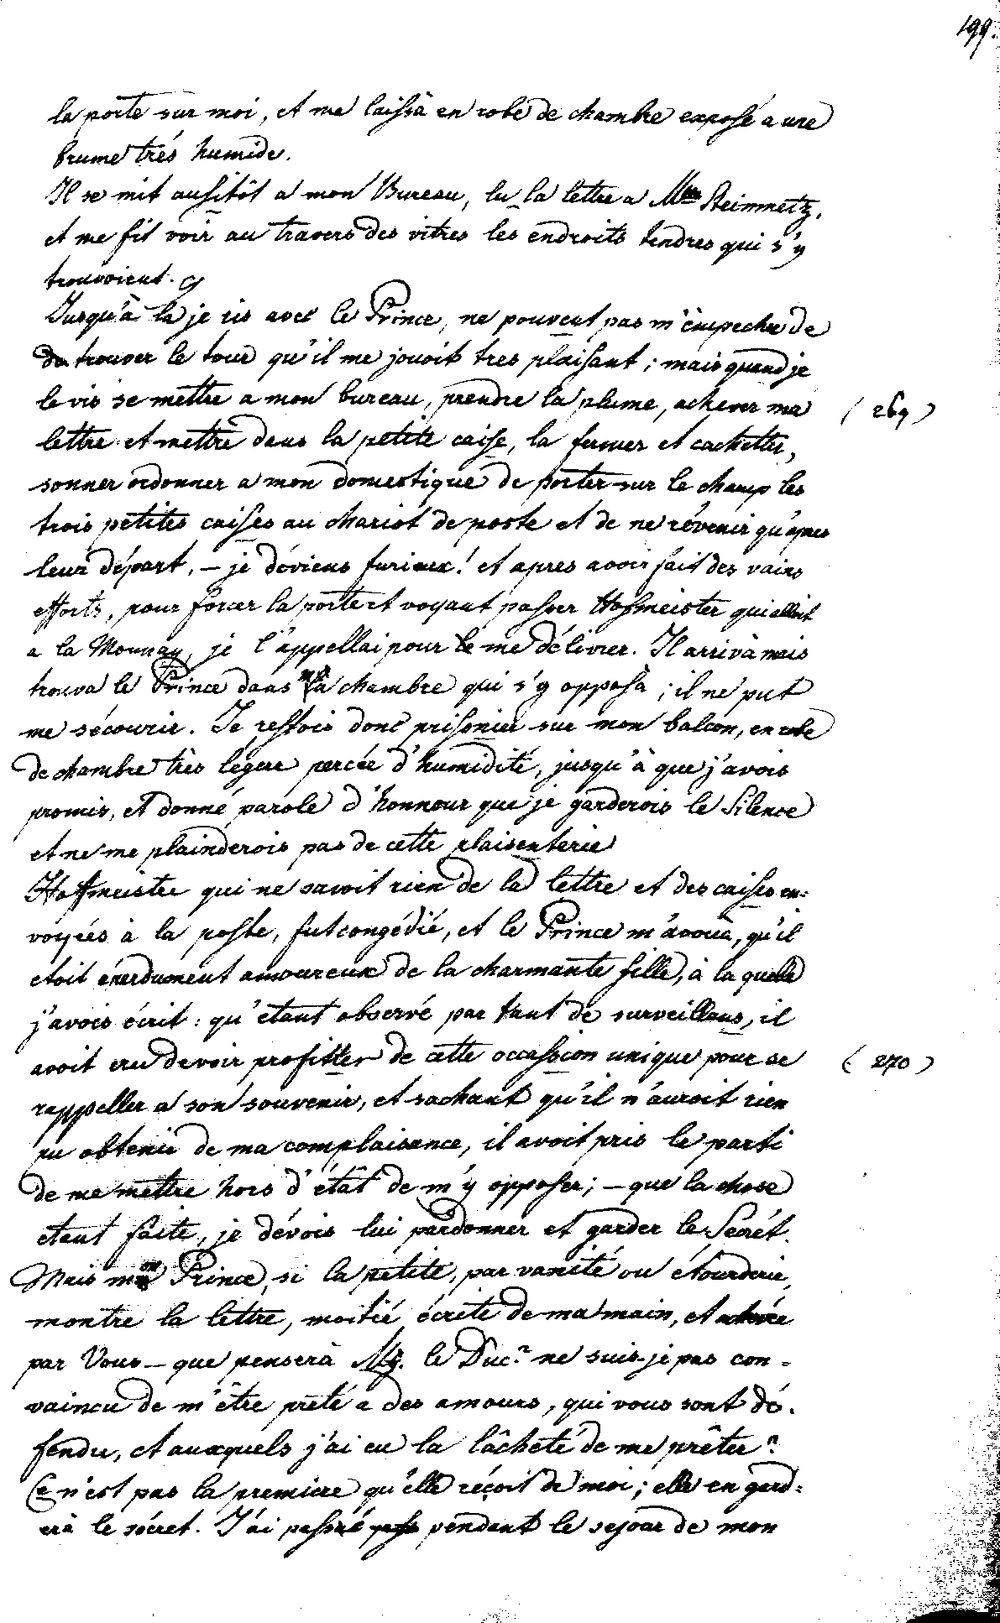 199.
la porte sur moi, et me laissà en robe de chambre exposé a une
brume trés humide.
Il se mit ausitôt a mon Bureau, lu la lettre a Mlle Steinmetz,
et me fit voir au travers des vitres les endroits tendres qui s'y
trouvoient.
Jusqu'à là je ris avec le Prince, ne pouvent pas m'empecher de
trouver le tour qu'il me jouoit tres plaisant; mais quand je
le vis se mettre a mon bureau, prendre la plume, achever ma
(269)
lettre et mettre dans la petite caisse, la fermer et cachetter,
sonner ordonner a mon domestique de porter sur le champ les
trois petites caisses au chariot de poste et de ne révenir qu'apres
leur départ, — je déviens furieux! et apres avoir fait des vains
efforts, pour forcer la porte et voyant passer Hofmeister qui alloit
a la Monnay, je l'appellai pour me délivrer. Il arrivà mais
trouva le Prince dans ma chambre qui s'y opposà; il ne put
me sécourir. Je restois donc prisonier sur mon balcon, en robe
de chambre très légere percée d'humidité, jusqu'à que j'avois
promis, et donné parole d'honneur que je garderois le Silence
et ne me plainderois pas de cette plaisenterie
Hoffmeister qui ne savoit rien de la lettre et des caisses en=
voyées à la poste, fut congédié, et le Prince m'avouà, qu'il
etoit éperduement amoureux de la charmante fille, à la quelle
j'avois écrit: qu'étant observé par tant de surveillans, il
avoit cru devoir profitter de cette occassion unique pour se
(270)
rappeller a son souvenir, et sachant qu'il n'auroit rien
pu obtenir de ma complaisance, il avoit pris le parti
de me mettre hors d'état de m'y opposer; — que la chose
etant faite, je dévois lui pardonner et garder le Secrét.
Mais mon Prince, si la petite, par vanité ou étourderie,
montre la lettre, moitié écrite de ma main, et achevée
par Vous — que penserà Mg. le Duc? ne suis-je pas con=
vaincu de m'être prété a des amours, qui vous sont dé=
fendu, et auxquels j'ai eu la lâcheté de me prêter?
Ce n'est pas la premiere qu'elle réçoit de moi; elle en gard=
erà le sécret. J'ai passé pendant le sejour de mon